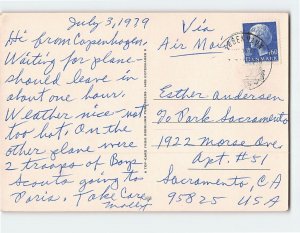 July 3, 1979
Hi from Copenhagen,
Waiting for plane—
should leave in
about one hour.
Weather nice - not
too hot. On the
other plane were
2 troops of Boy
Scouts going to
Paris. Take Care,
Molly
Via
Air Mail
DANMARK
Esther Andersen
℅ Park Sacramento
1922 Morse Ave.
Apt. #51
Sacramento, CA
95825 USA